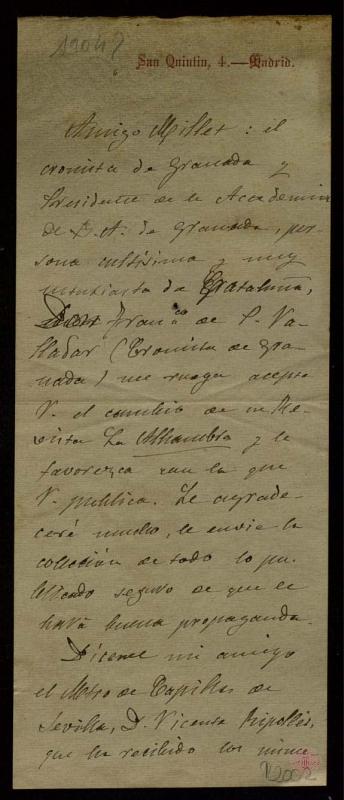 1904?
San Quintin, 4.—Madrid.
Amigo Millet: el
cronista de Granada y
Presidente de la Academia
de B. A. de Granada, per-
sona cultísima y muy
entusiasta de Cataluña,
Fran.co de P. Va-
lladar (Cronista de Gra-
nada) me ruega acepte
V. el cambio de su Re-
vista La Alhambra y le
favorezca con la que
V. publica. Le agrade-
ceré mucho, le envie la
colección de todo lo pu-
blicado seguro de que el
hará buena propaganda.
Díceme mi amigo
el Mtro de Capilla de
Sevilla, D. Vicente Ripollés,
que ha recibido los núme-